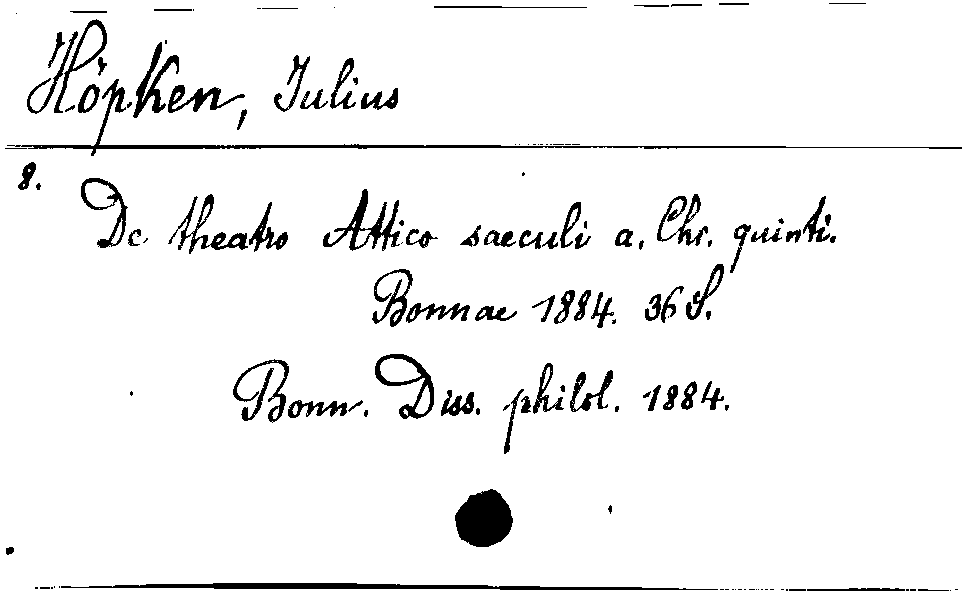 Höpken, Julius
8.
De theatro Attico saeculi a. Chr. quinti.
Bonnae 1884. 36 S.
Bonn. Diss. philol. 1884.